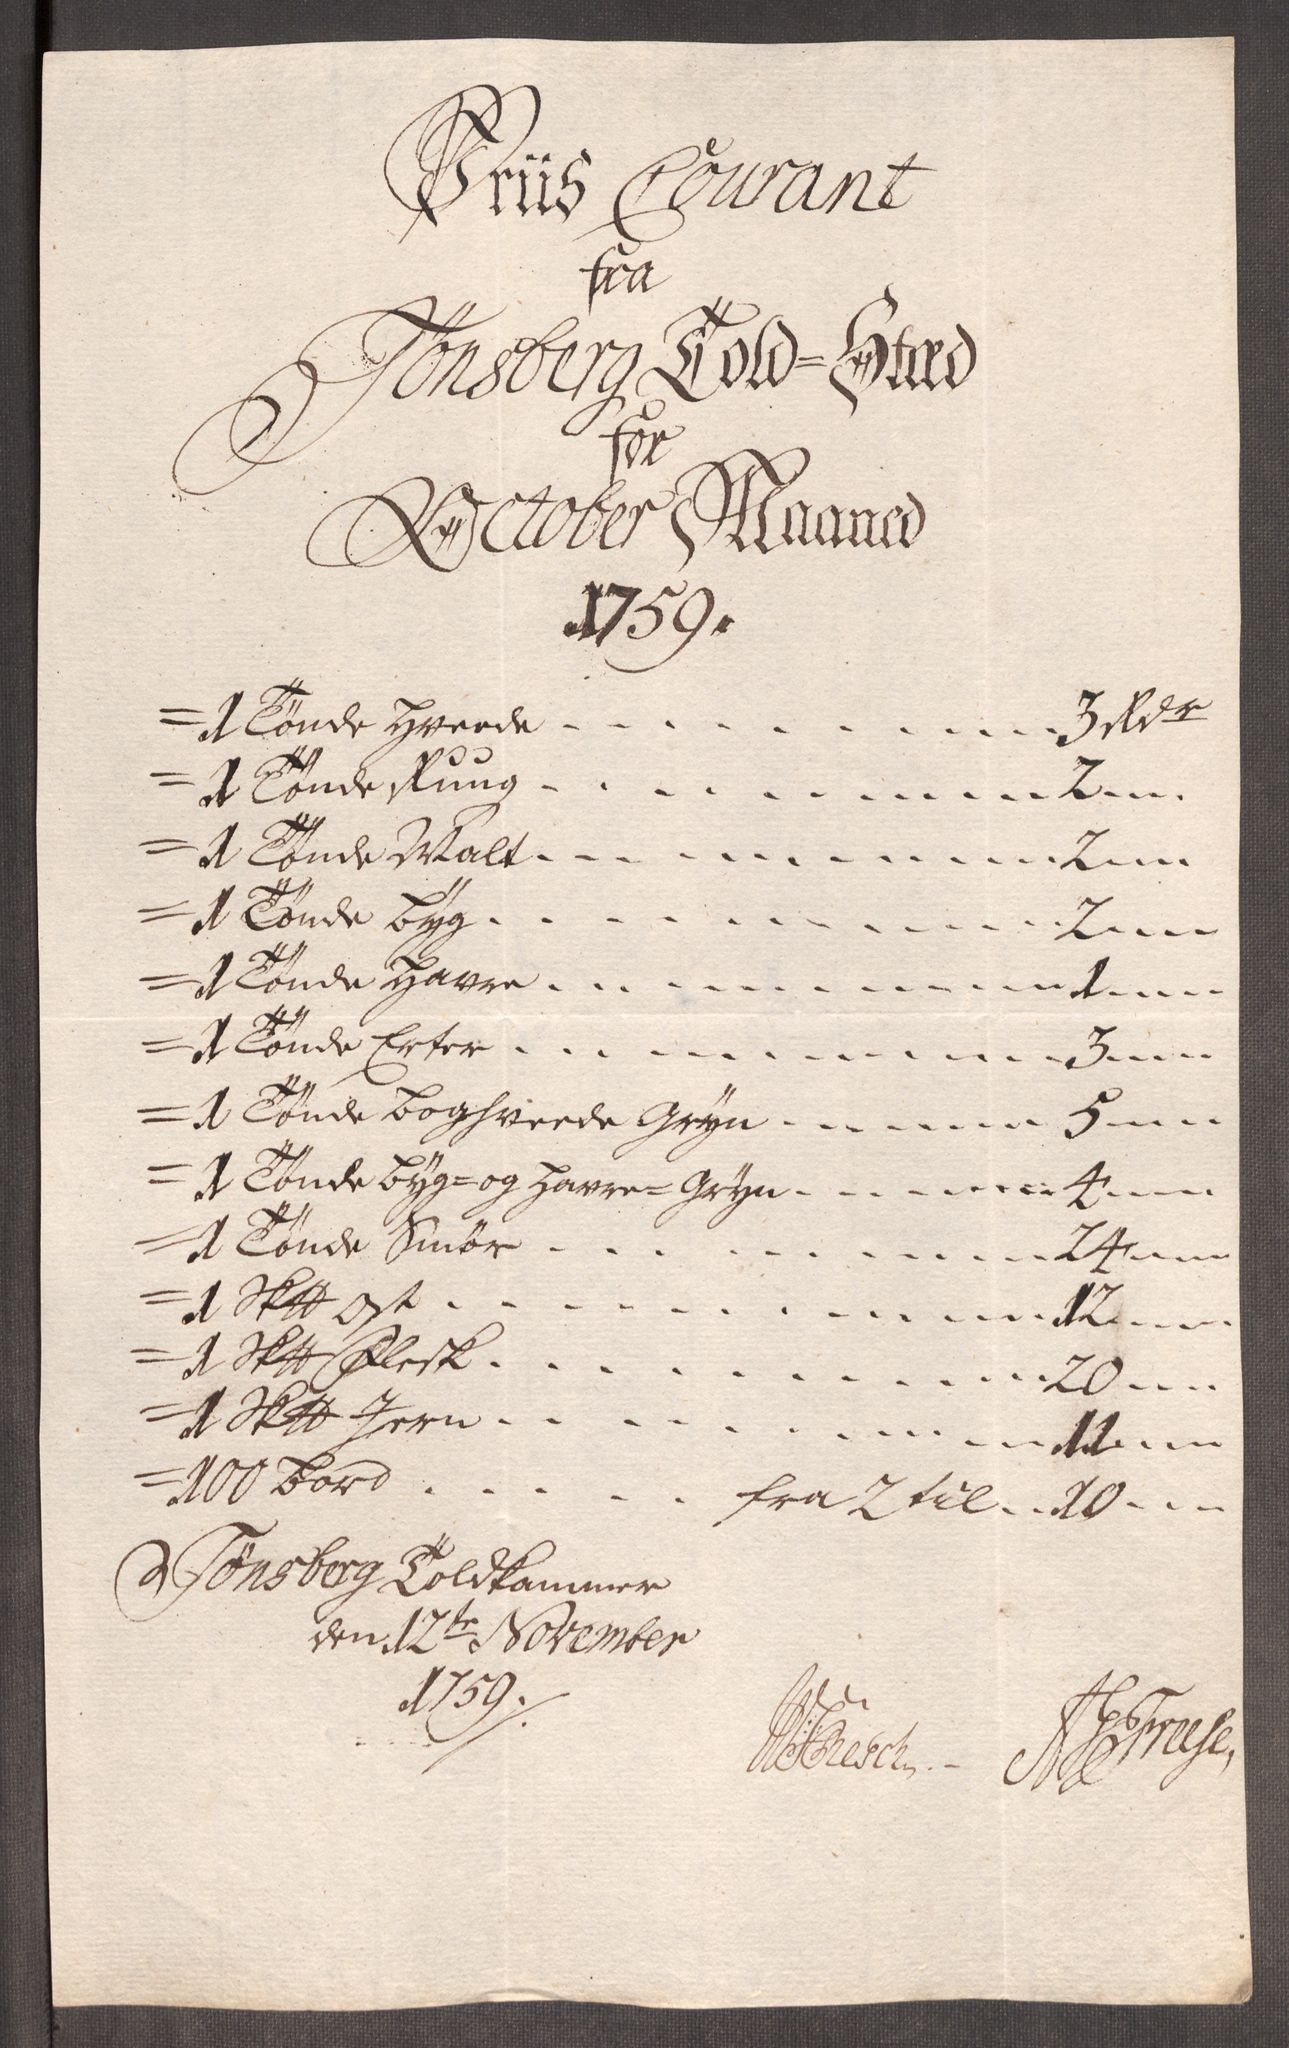 Priis Courant
fra
Tönsberg Told=Stæd
for
October Maaned
1759.
= 1 Tönde Hveede - - - - - 3 Rdr
= 1 Tönde Rúúg - - - - - 2 - - -
= 1 Tönde Malt - - - - - 2 - - -
= 1 Tönde Byg - - - - - 2 - - -
= 1 Tönde Havre - - - - - 1 - - -
= 1 Tönde Erter - - - - - 3 - - -
= 1 Tönde Boghveede Gryn - - - - - 5 - - -
= 1 Tönde Byg= og Havre= Gryn - - - - - 4 - - -
= 1 Tönde Smör - - - - - 24 - - -
= 1 Sk℔ Ost - - - - - 12 - - -
= 1 Sk℔ Flesk - - - - - 20 - - -
= 1 Sk℔ Jern - - - - - 11 - - -
= 100 Bord - - - - - fra 2 til - - 10 - - -
Tönsberg Toldkammer
den 12te November
1759.
Resch. Freese,